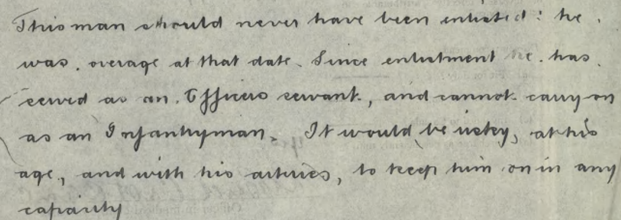 This man should never have been enlisted: he
was. overage at that date. Since enlistment he. has.
served as an. Officers servant, and cannot carry on
as an Infantryman. It would be risky, at his
age, and with his arteries, to keep him on in any
capacity